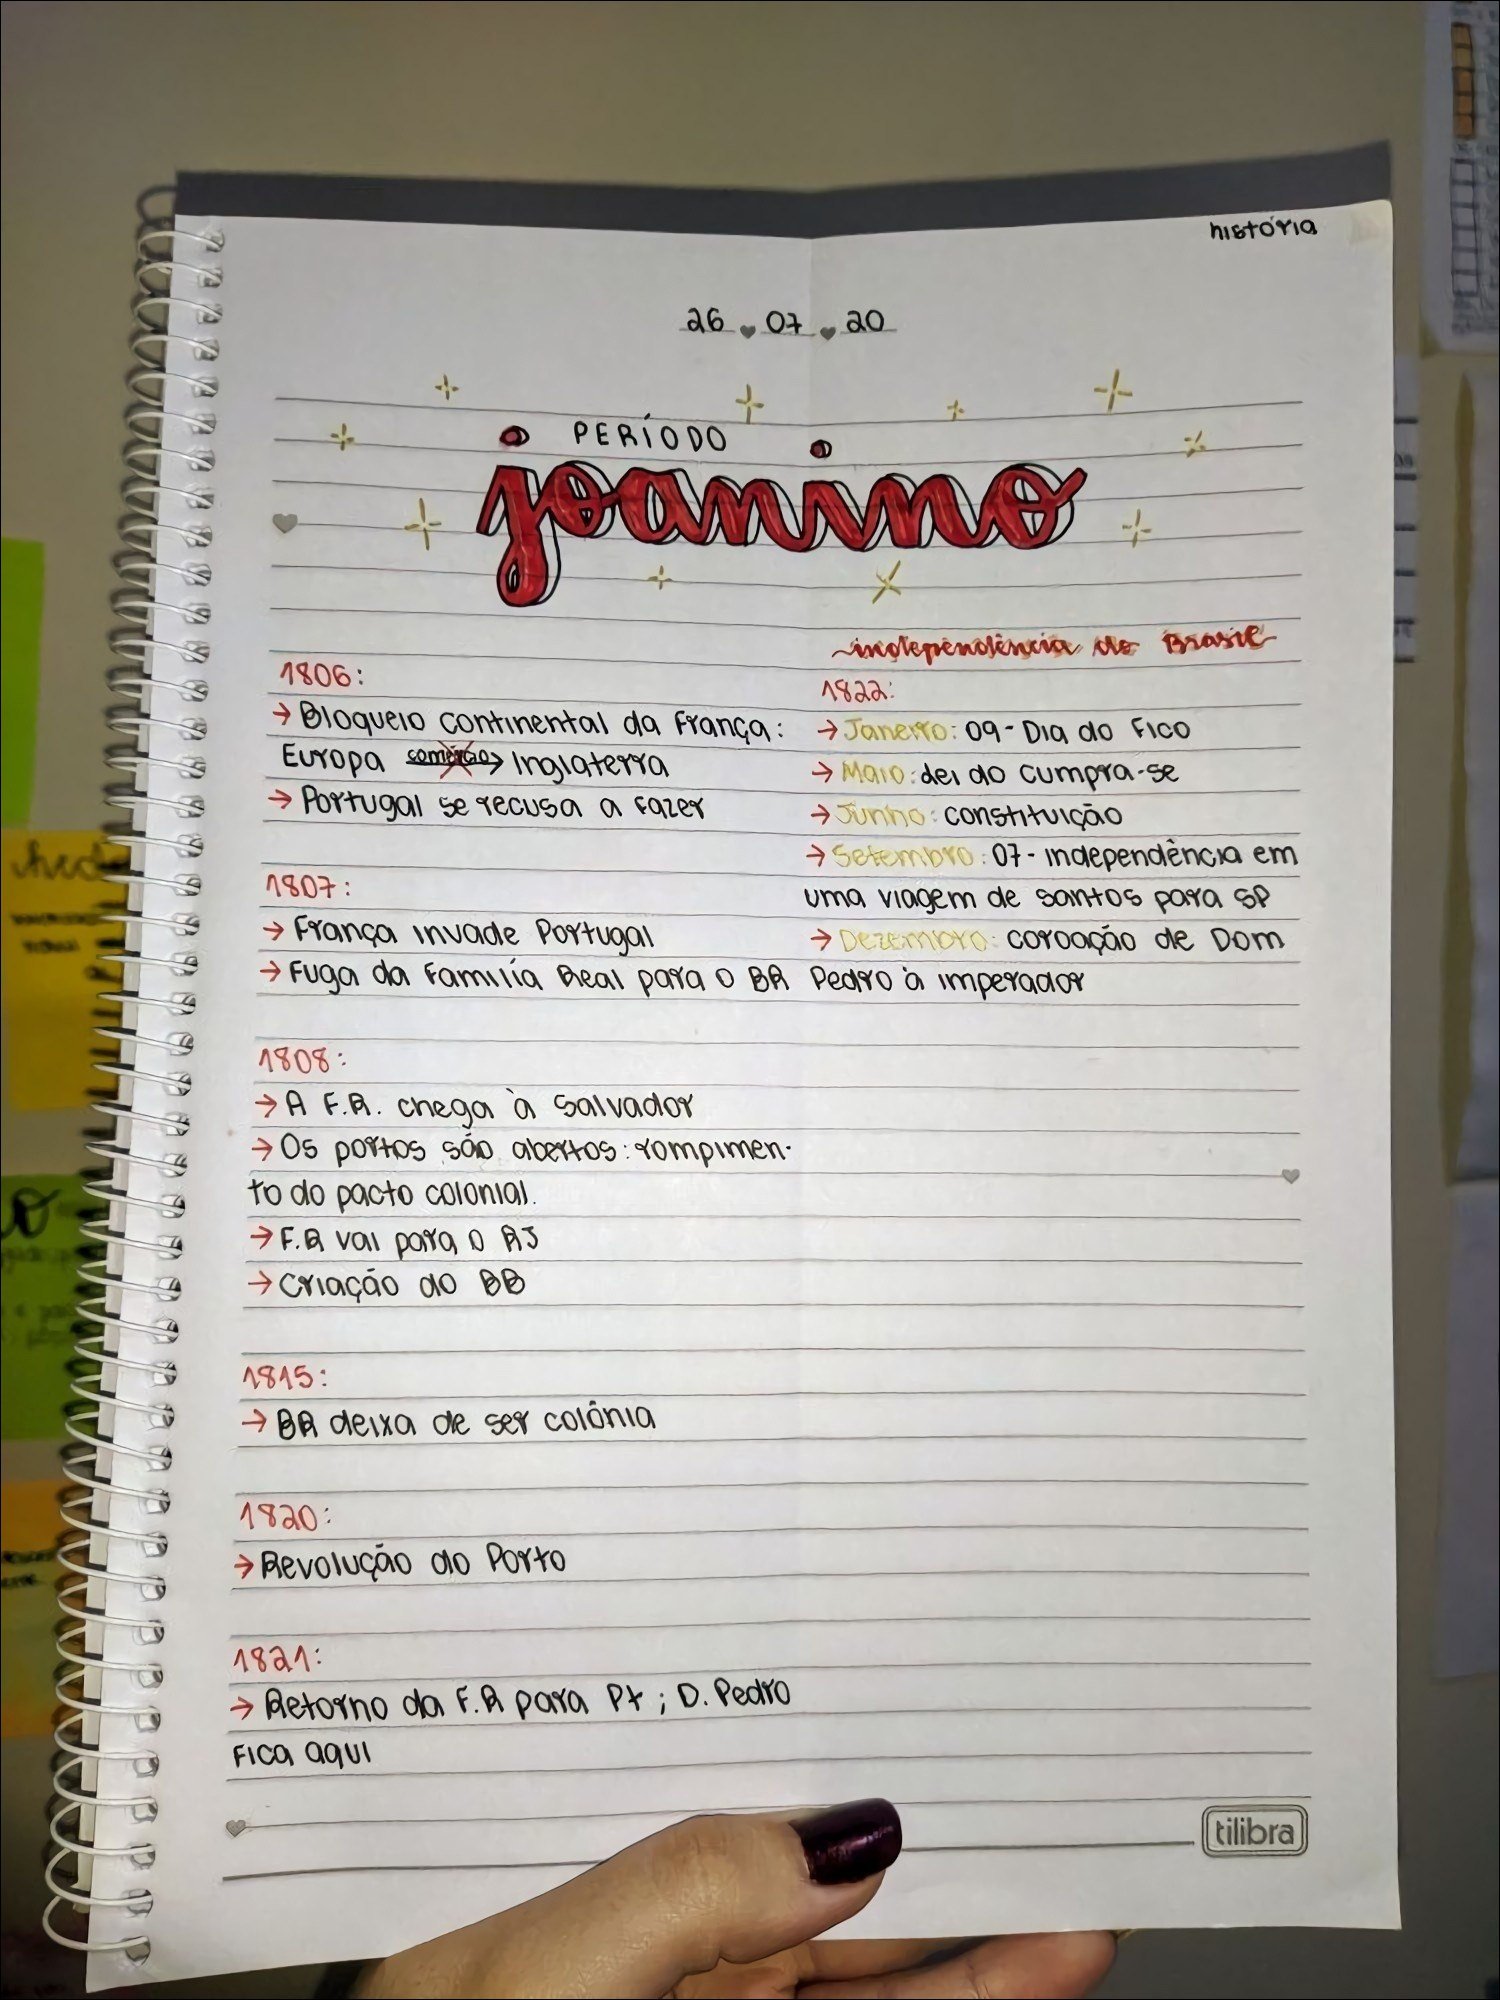 história
26 07 20
PERÍODO
joanino
1806:
→ Bloqueio continental da França:
Europa comércio → Inglaterra
→ Portugal se recusa a fazer
1807:
→ França invade Portugal
→ Fuga da Família Real para o BR
1808:
→ A F.R. chega à Salvador
→ Os portos são abertos: rompimen-
to do pacto colonial.
→ F.R vai para o RJ
→ Criação do BB
1815:
→ BR deixa de ser colônia
1820:
→ Revolução do Porto
1821:
→ Retorno da F.R para Pt ; D. Pedro
fica aqui
~independência do Brasil~
1822:
→ Janeiro: 09 - Dia do Fico
→ Maio: dei do cumpra-se
→ Junho: constituição
→ Setembro: 07 - independência em
uma viagem de santos para SP
→ Dezembro: coroação de Dom
Pedro à imperador
tilibra